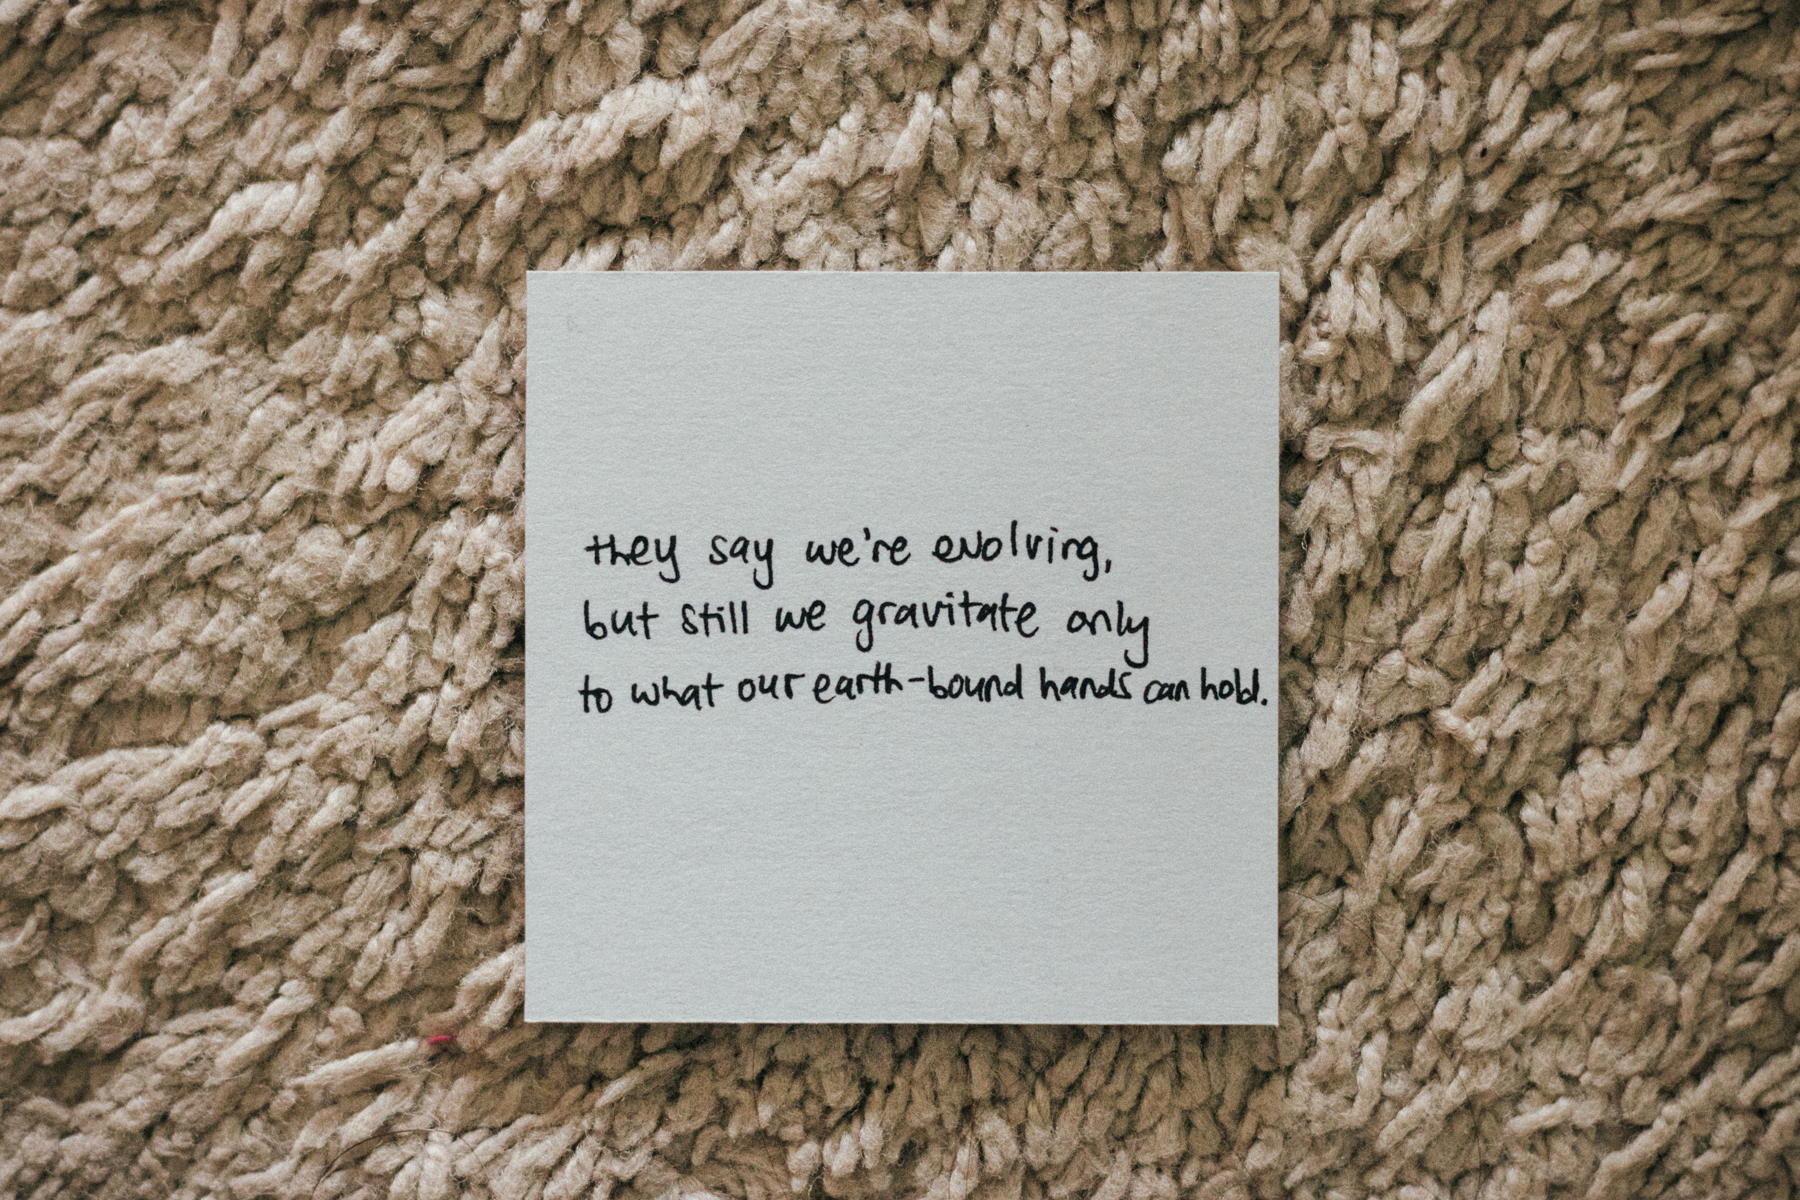 they say we're evolving,
but still we gravitate only
to what our earth-bound hands can hold.